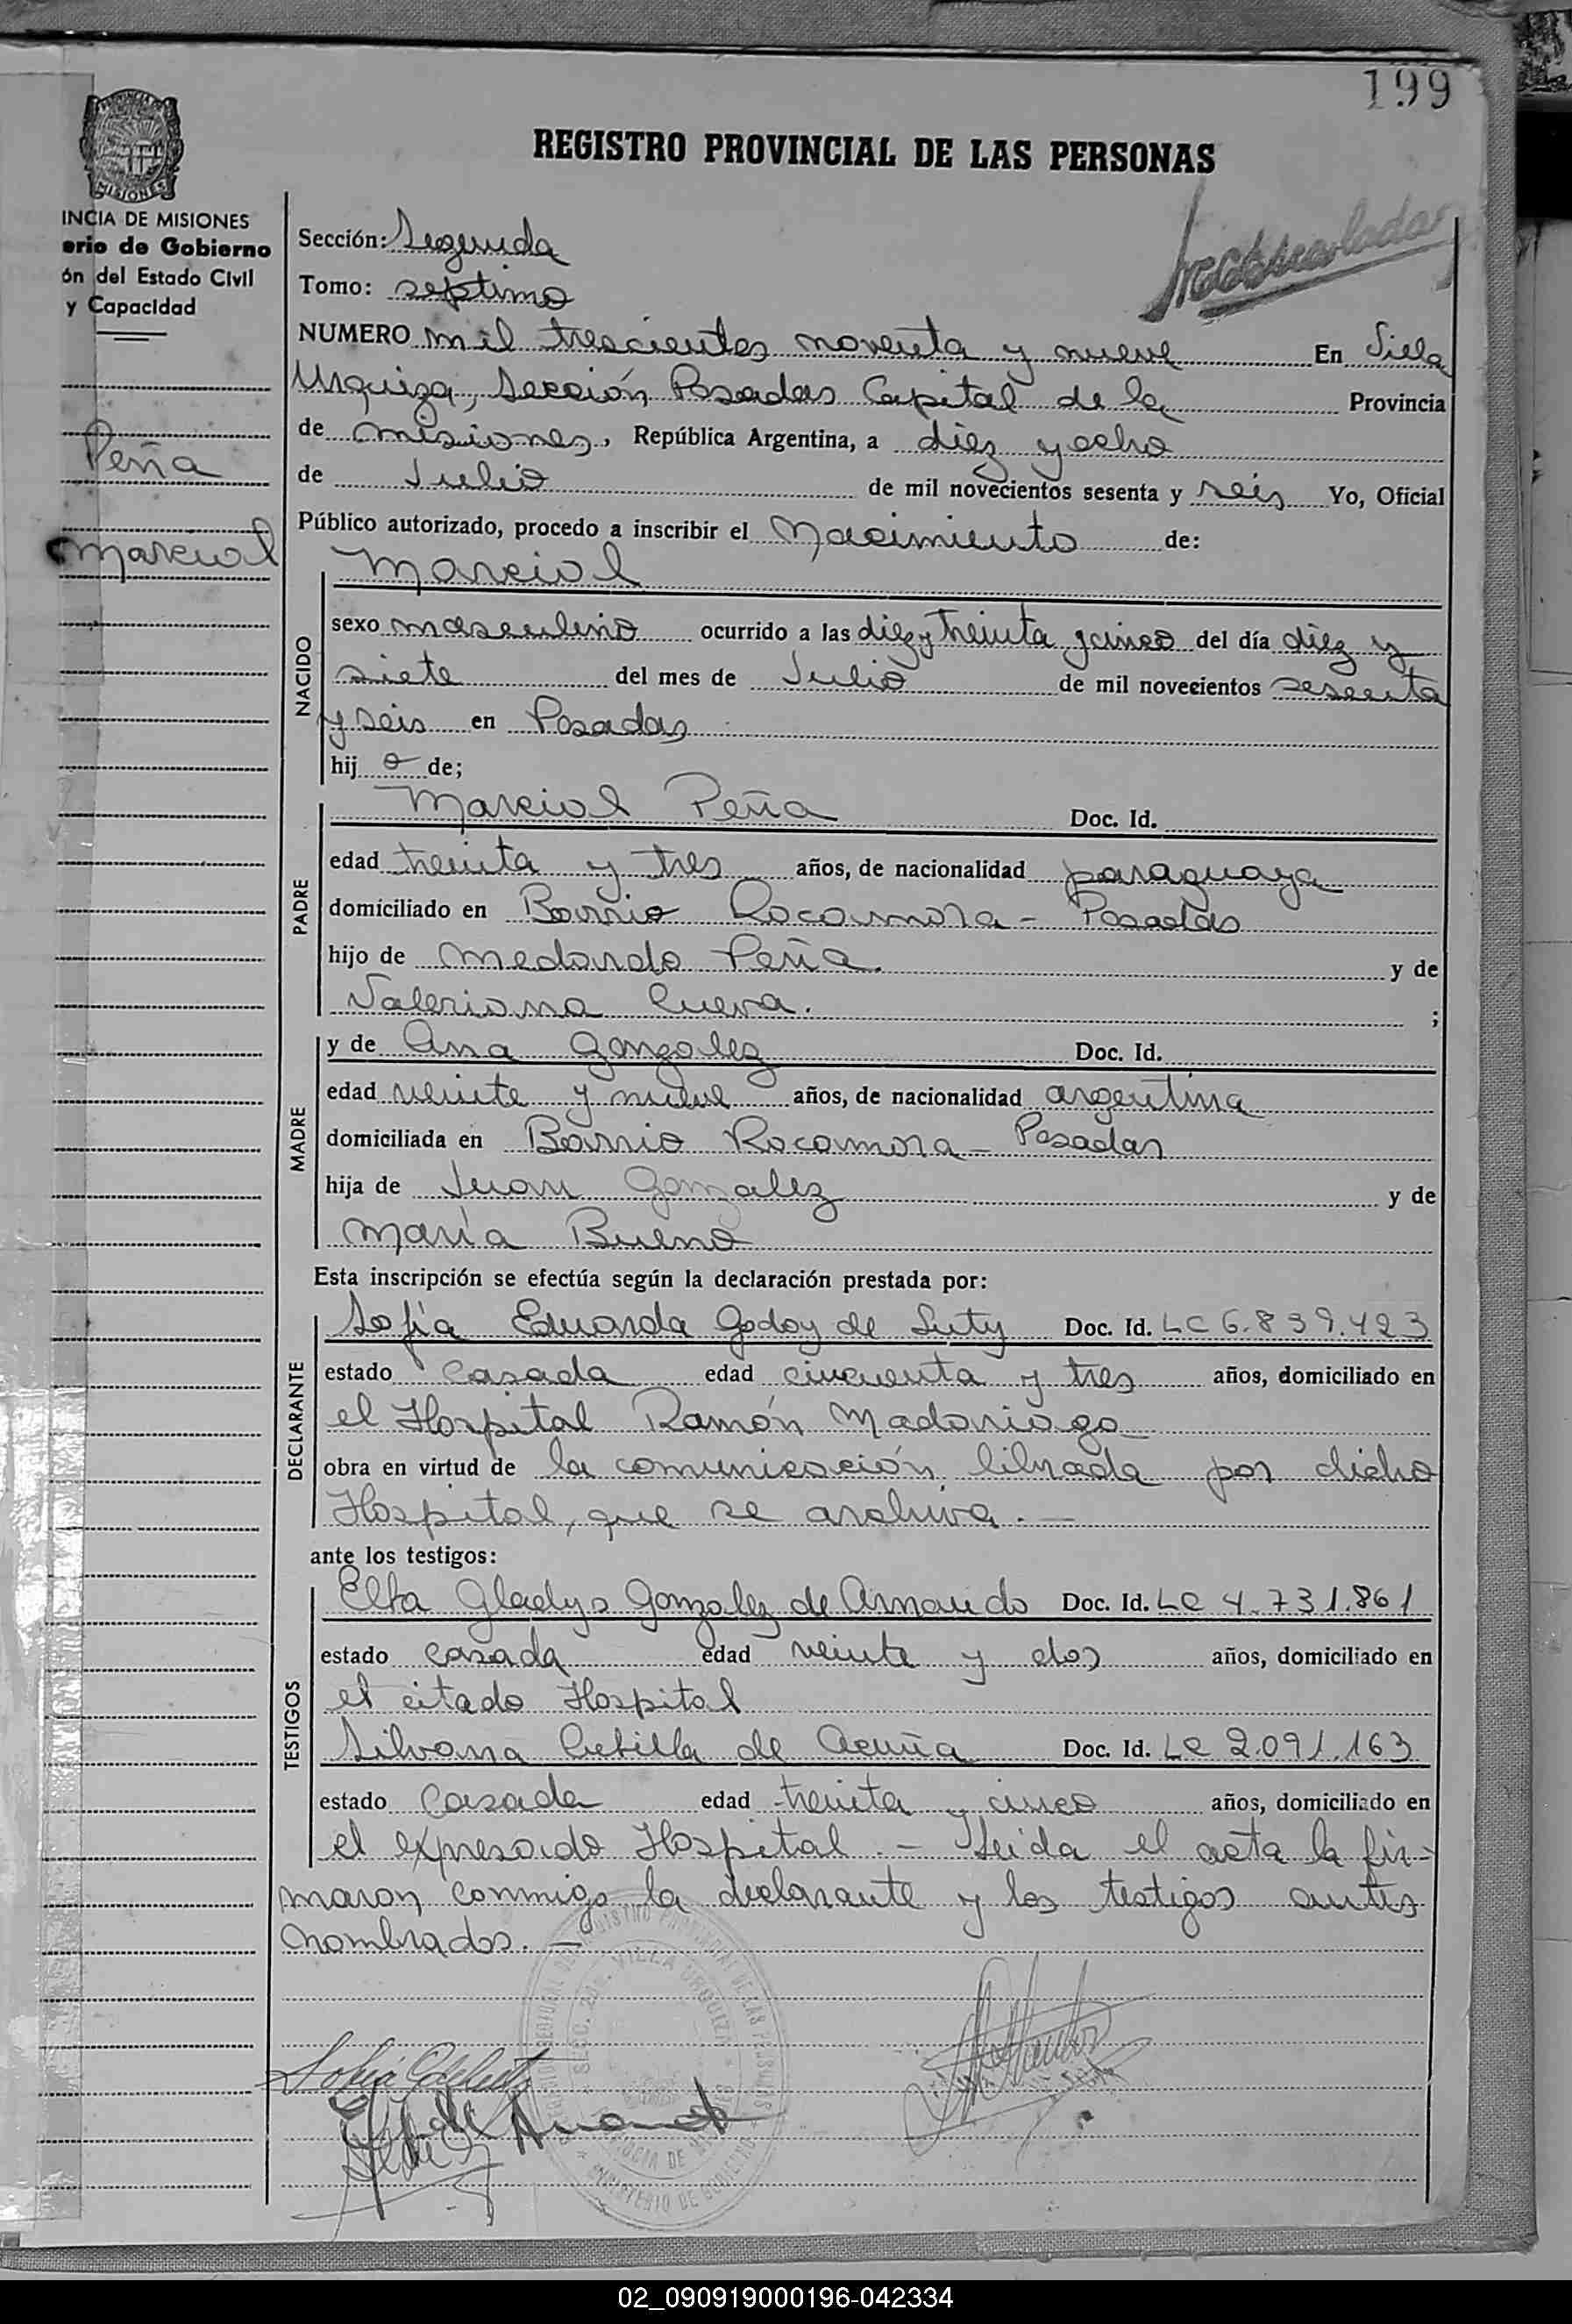 199
REGISTRO PROVINCIAL DE LAS PERSONAS
MISIONES
INCIA DE MISIONES
erio de Gobierno
ón del Estado Civil
y Capacidad
Peña
Marcial
Sección: Segunda
Tomo: septimo
NUMERO mil trescientos noventa y nueve En Villa
Urquiza, Sección Posadas Capital de la Provincia
de misiones, República Argentina, a diez y ocho
de Julio de mil novecientos sesenta y seis Yo, Oficial
Público autorizado, procedo a inscribir el Nacimiento de:
NACIDO
Marcial
sexo masculino ocurrido a las diez y treinta y cinco del día diez y
siete del mes de Julio de mil novecientos sesenta
y seis en Posadas
hij o de;
PADRE
Marcial Peña Doc. Id.
edad treinta y tres años, de nacionalidad paraguaya
domiciliado en Barrio Rocamora - Posadas
hijo de Medardo Peña. y de
Valeriana Cueva. ;
MADRE
y de Ana Gonzalez Doc. Id.
edad veinte y nueve años, de nacionalidad argentina
domiciliada en Barrio Rocamora - Posadas
hija de Juan Gonzalez y de
María Bueno
Esta inscripción se efectúa según la declaración prestada por:
DECLARANTE
Sofía Eduarda Godoy de Luty Doc. Id. LC 6.839.423
estado casada edad cincuenta y tres años, domiciliado en
el Hospital Ramón Madariaga
obra en virtud de la comunicación librada por dicho
Hospital, que se archiva. -
ante los testigos:
TESTIGOS
Elba Gladys Gonzalez de Arnando Doc. Id. LC 4.731.861
estado casada edad veinte y dos años, domiciliado en
el citado Hospital
Silvana de Acuña Doc. Id. LC 2.091.163
estado Casada edad treinta y cinco años, domiciliado en
el expresado Hospital. - Leida el acta la fir-
maron conmigo la declarante y los testigos antes
nombrados. -
SECC. 2da. VILLA URQUIZA
MINISTERIO DE GOBIERNO
02_090919000196-042334